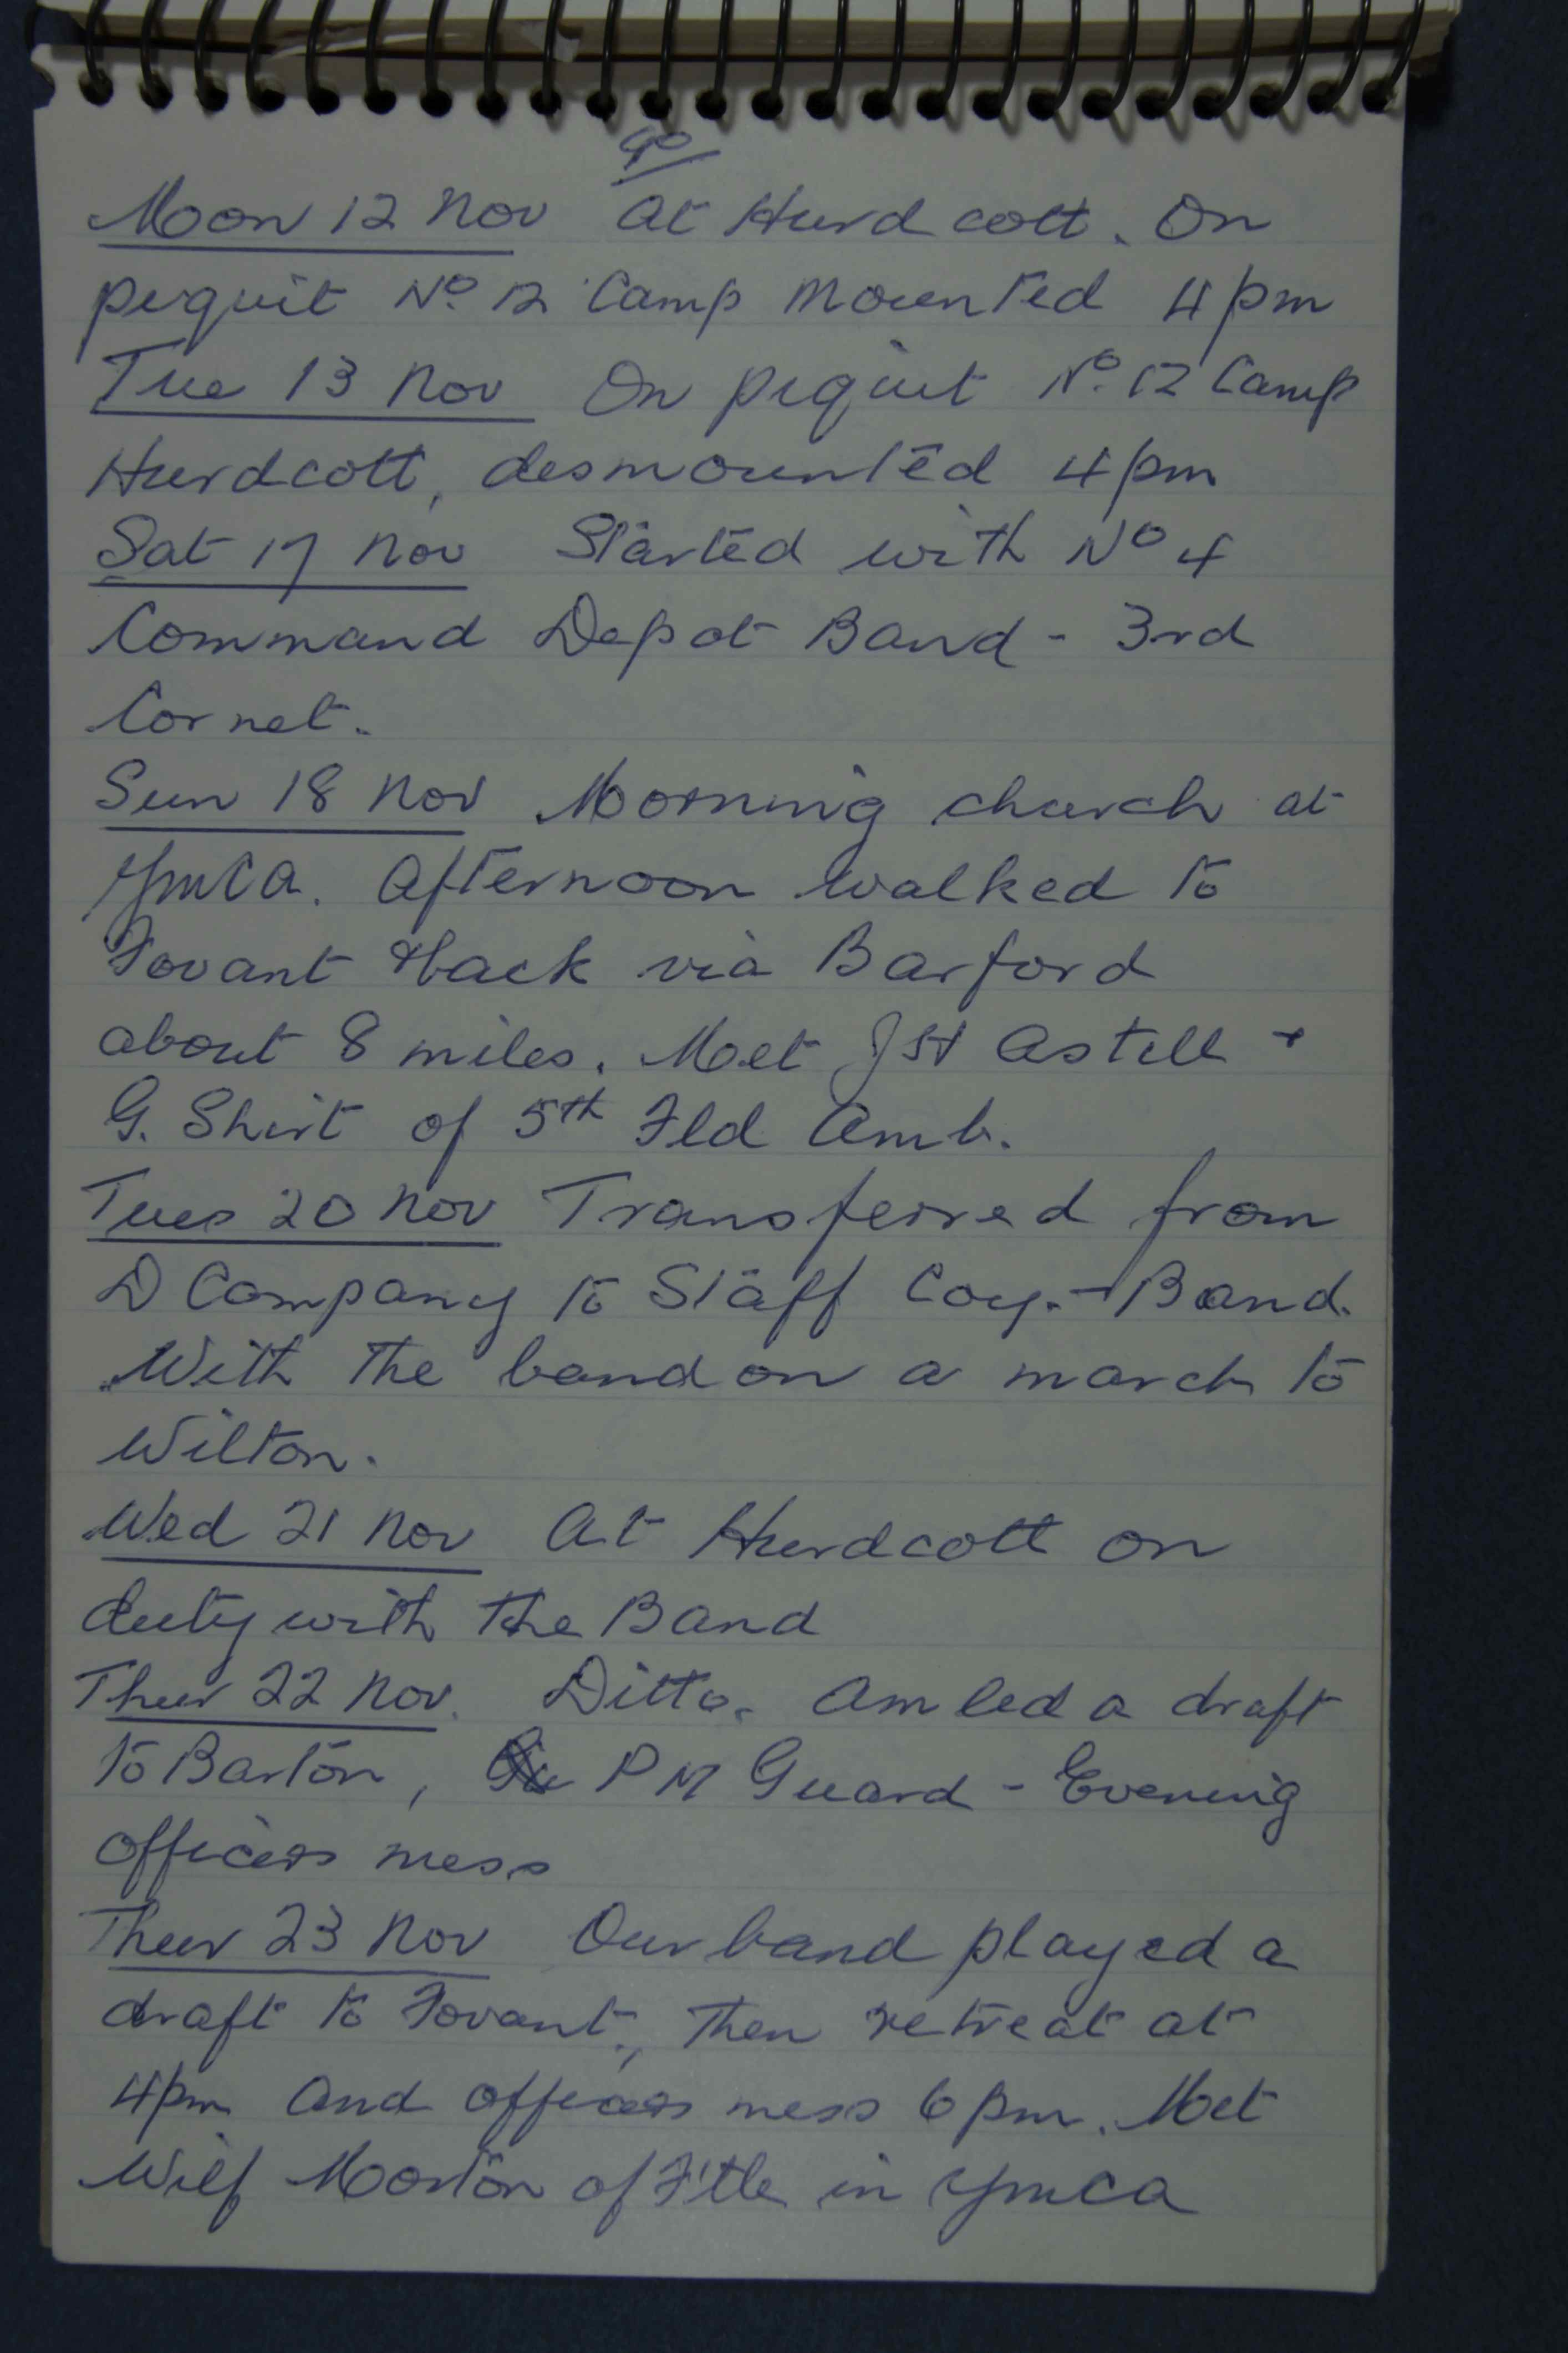 90
Moon 12 Nov at Hurdcott. On
pequit No. 12 Camp mounted 4 pm
Tue 13 Nov On piquit No. 12 Camp
Hurdcott, desmounted 4 pm
Sat 17 Nov Started with No 4
Command Depot Band - 3rd
Cornet.
Sun 18 Nov Morning church at
YMCA. Afternoon walked to
Fovant & back via Barford
about 8 miles. Met J St Astell +
G. Shirt of 5th Fld Amb.
Tues 20 Nov Transferred from
D Company to Staff Coy. - Band.
With the band on a march to
Wilton.
Wed 21 Nov At Hurdcott on
duty with the Band
Thur 22 Nov. Ditto. Am led a draft
to Barton, PM Guard - Evening
officers mess
Thur 23 Nov Our band played a
draft to Fovant, then retreat at
4 pm and officers mess 6 pm. Met
Wilf Morton of F'tle in YMCA